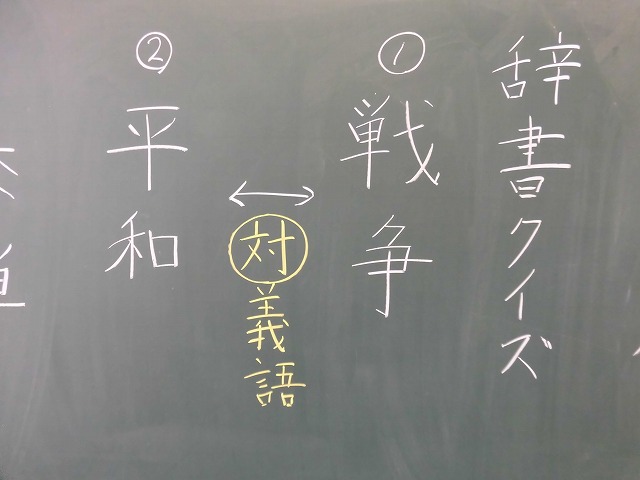 辞書クイズ
①
戦争
↔
対義語
②
平和